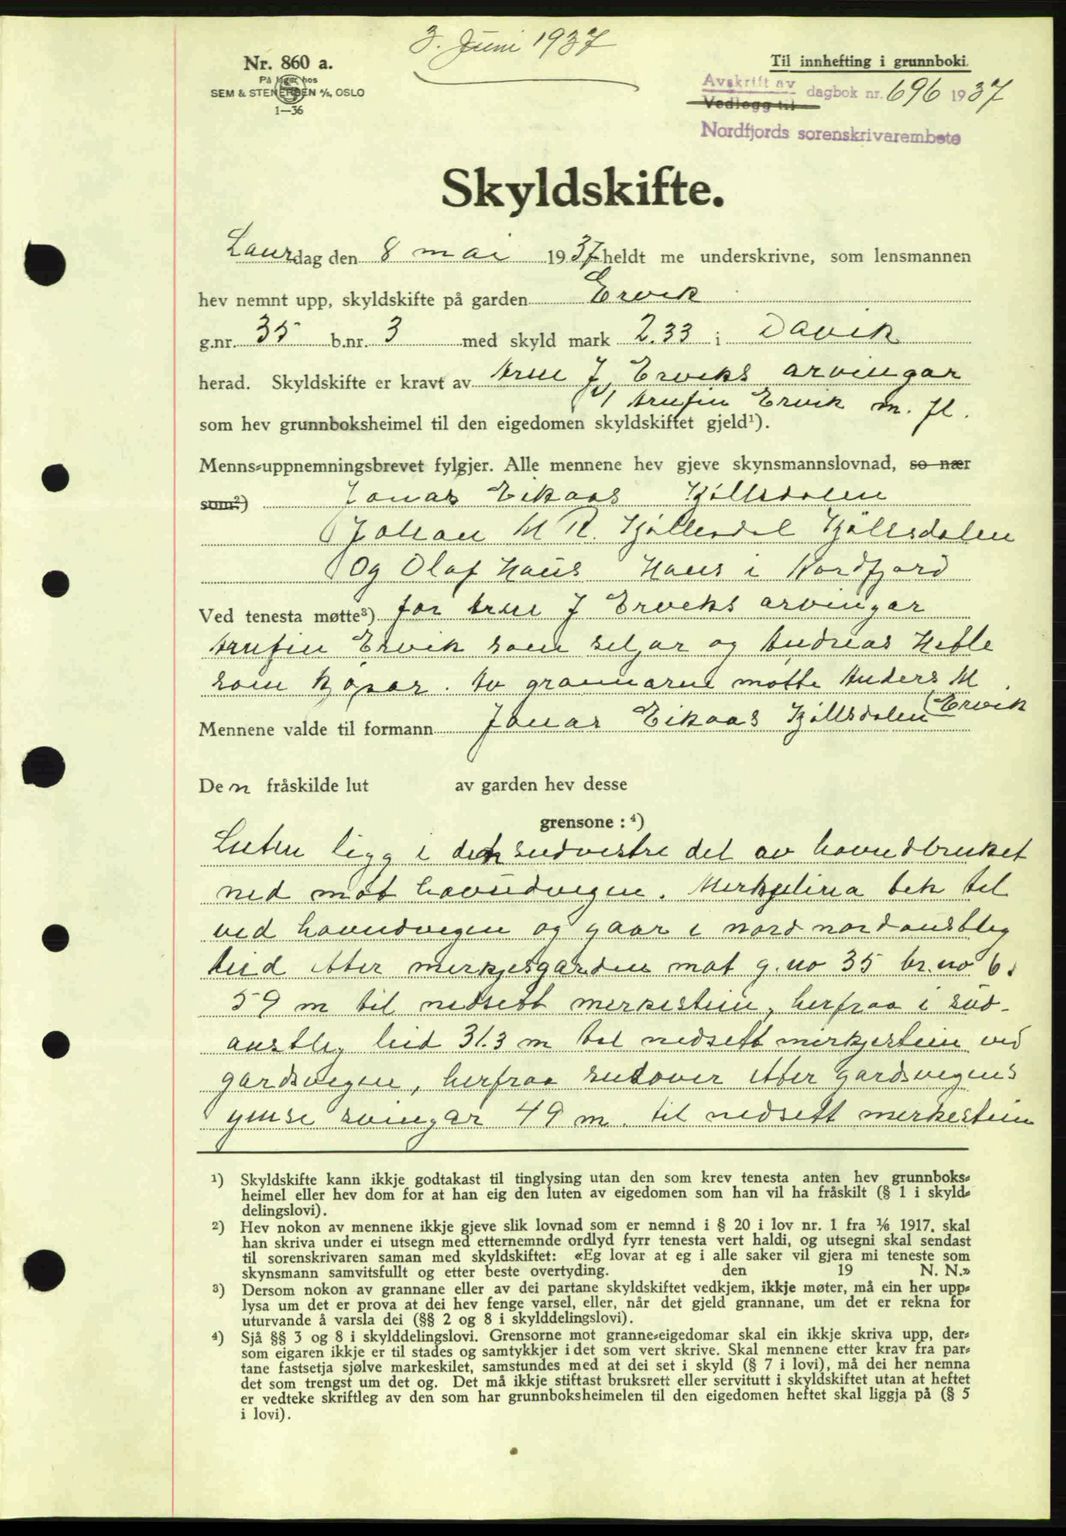 3. Juni 1937
Nr. 860 a.
På lager hos
SEM & STENERSEN A/S, OSLO
1—36
Til innhefting i grunnboki.
Avskrift av
Vedlegg til
dagbok nr. 696 1937
Nordfjords sorenskrivarembete
Skyldskifte.
Laurdag den 8 mai 1937 heldt me underskrivne, som lensmannen
hev nemnt upp, skyldskifte på garden Ervik
g.nr. 35 b.nr. 3 med skyld mark 2.33 i Davik
herad. Skyldskifte er kravt av J. Erviks arvingar
v/ Ervik m. fl.
som hev grunnboksheimel til den eigedomen skyldskiftet gjeld¹).
Menns-uppnemningsbrevet fylgjer. Alle mennene hev gjeve skynsmannslovnad, so nær
som²) Jonas Eikaas Kjöllsdalen
Johan M R. Kjöllesdal Kjöllsdalen
Og Olaf Haus Haus i Nordfjord
Ved tenesta møtte³) for J Erviks arvingar
Ervik som seljar og Andreas Hesle
som kjøpar. Av grannarne møtte Anders M
Ervik
Mennene valde til formann Jonas Eikaas Kjöllsdalen
Den fråskilde lut av garden hev desse
grensone : ⁴)
Luten ligg i den sudvestre del av hovudbruket
ned mot hovudvegen. Merkjelina tek til
ved hovudvegen og gaar i nord nordaustleg
leid etter merkjesgarden mot g.no 35 br.no 6.
59 m til nedsett merkestein, herfraa i sud-
austleg leid 31.3 m til nedsett merkjestein ved
gardsvegen, herfraa sudover etter gardsvegens
ymse svingar 49 m. til nedsett merkestein
¹) Skyldskifte kann ikkje godtakast til tinglysing utan den som krev tenesta anten hev grunnboks-
heimel eller hev dom for at han eig den luten av eigedomen som han vil ha fråskilt (§ 1 i skyld-
delingslovi).
²) Hev nokon av mennene ikkje gjeve slik lovnad som er nemnd i § 20 i lov nr. 1 fra 1/6 1917, skal
han skriva under ei utsegn med etternemnde ordlyd fyrr tenesta vert haldi, og utsegni skal sendast
til sorenskrivaren saman med skyldskiftet: «Eg lovar at eg i alle saker vil gjera mi teneste som
skynsmann samvitsfullt og etter beste overtyding. den 19 N. N.»
³) Dersom nokon av grannane eller av dei partane skyldskiftet vedkjem, ikkje møter, må ein her upp-
lysa um det er prova at dei hev fenge varsel, eller, når det gjeld grannane, um det er rekna for
uturvande å varsla dei (§§ 2 og 8 i skylddelingslovi).
⁴) Sjå §§ 3 og 8 i skylddelingslovi. Grensorne mot granne-eigedomar skal ein ikkje skriva upp, der-
som eigaren ikkje er til stades og samtykkjer i det som vert skrive. Skal mennene etter krav fra par-
tane fastsetja sjølve markeskilet, samstundes med at dei set i skyld (§ 7 i lovi), må dei her nemna
det som trengst um det og. Det må ikkje stiftast bruksrett eller servitutt i skyldskiftet utan at heftet
er vedteke skriftleg av den som har grunnboksheimelen til den eigedomen heftet skal liggja på (§ 5
i lovi).